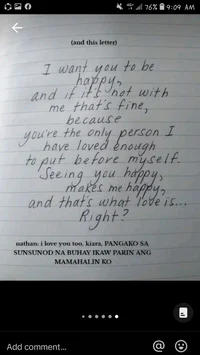 76% 9:09 AM
(and this letter)
I want you to be
happy,
and if it's not with
me that's fine,
because
you're the only person I
have loved enough
to put before myself.
Seeing you happy,
makes me happy,
and that's what love is...
Right?
nathan: i love you too, kiara, PANGAKO SA
SUNSUNOD NA BUHAY IKAW PARIN ANG
MAMAHALIN KO
Add comment...